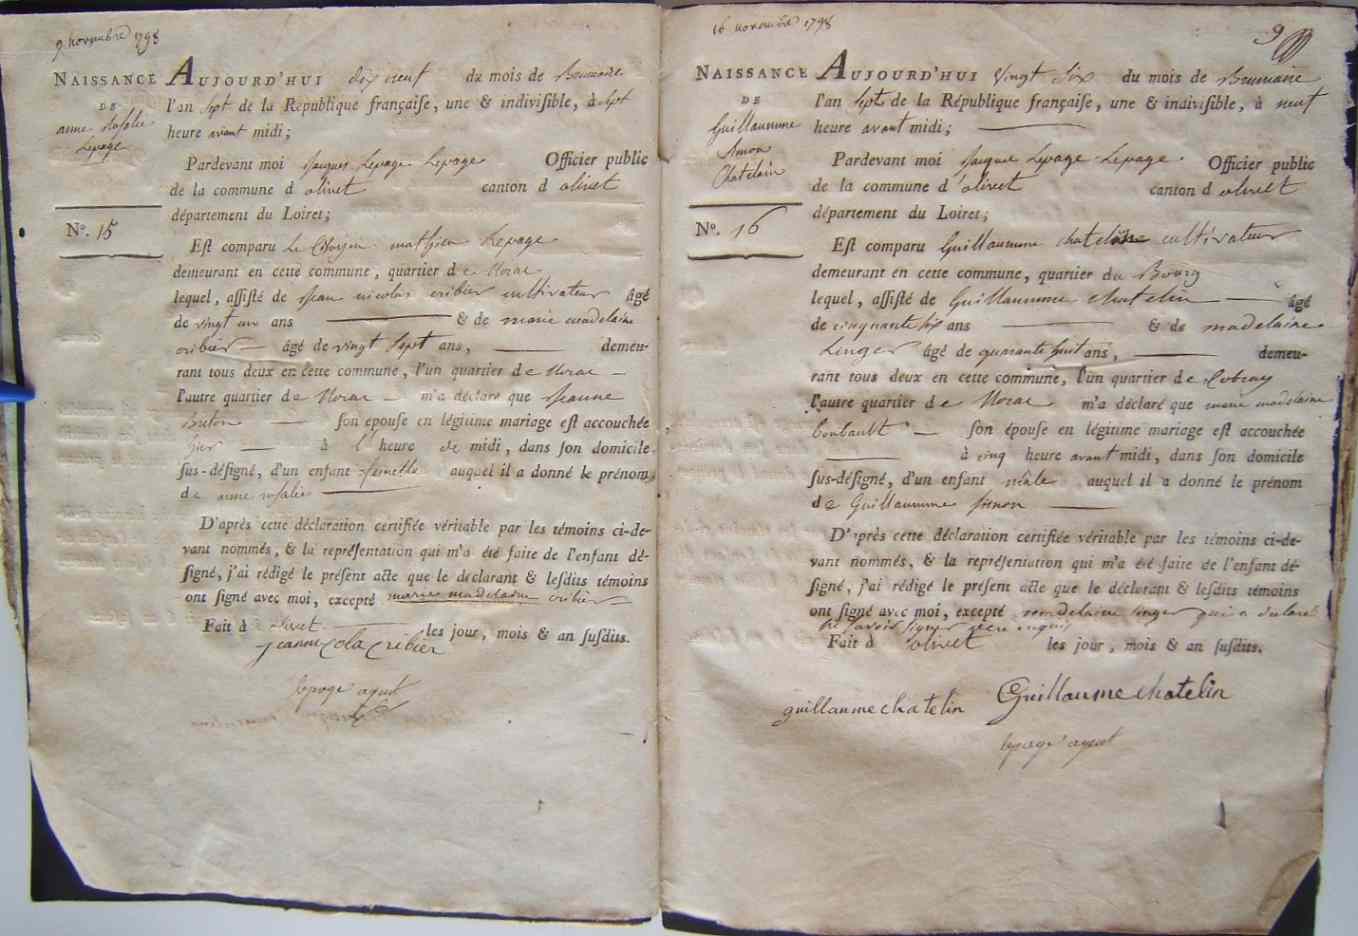 9 novembre 1798
NAISSANCE
DE
anne Rosalie
Lepage
No. 15
AUJOURD'HUI dix neuf du mois de Brumaire
l'an sept de la République françaiſe, une & indiviſible, à sept
heure avant midi;
Pardevant moi Jacques Lepage Lepage Officier public
de la commune d olivet canton d olivet
département du Loiret;
Eſt comparu Le Citoyen mathieu Lepage
demeurant en cette commune, quartier de
lequel, aſſiſté de Jean nicolas cribier cultivateur âgé
de vingt un ans & de marie madelaine
cribier âgé de vingt Sept ans, demeu-
rant tous deux en cette commune, l'un quartier de
l'autre quartier de m'a déclaré que Jeanne
ſon épouſe en légitime mariage eſt accouchée
hier à l'heure de midi, dans ſon domicile
ſus-déſigné, d'un enfant femelle auquel il a donné le prénom
de anne rosalie
D'après cette déclaration certifiée véritable par les témoins ci-de-
vant nommés, & la repréſentation qui m'a été faite de l'enfant dé-
ſigné, j'ai rédigé le préſent acte que le déclarant & leſdits témoins
ont ſigné avec moi, excepté marie madelaine cribier
Fait à olivet les jour, mois & an ſuſdits.
jeannicolacribier
lepage agent
16 novembre 1798
9
NAISSANCE
DE
Guillaumme
Simon
Chatelain
No. 16
AUJOURD'HUI Vingt Six du mois de Brumaire
l'an Sept de la République françaiſe, une & indiviſible, à neuf
heure avant midi;
Pardevant moi Jacque Lepage Lepage. Officier public
de la commune d olivet canton d olivet
département du Loiret;
Eſt comparu Guillaumme chatelin cultivateur
demeurant en cette commune, quartier du Bourg
lequel, aſſiſté de Guillaumme chatelin âgé
de cinquante six ans & de madelaine
Linger âgé de quarante huit ans, demeu-
rant tous deux en cette commune, l'un quartier de
l'autre quartier de m'a déclaré que marie madelaine
ſon épouſe en légitime mariage eſt accouchée
à cinq heure avant midi, dans ſon domicile
ſus-déſigné, d'un enfant mâle auquel il a donné le prénom
de Guillaumme simon
D'après cette déclaration certifiée véritable par les témoins ci-de-
vant nommés, & la repréſentation qui m'a été faite de l'enfant dé-
ſigné, j'ai rédigé le préſent acte que le déclarant & leſdits témoins
ont ſigné avec moi, excepté madelaine Linger qui a declaré
ne savoir signer
Fait à olivet les jour, mois & an ſuſdits.
guillaumechatelin Guillaumechatelin
lepage agent